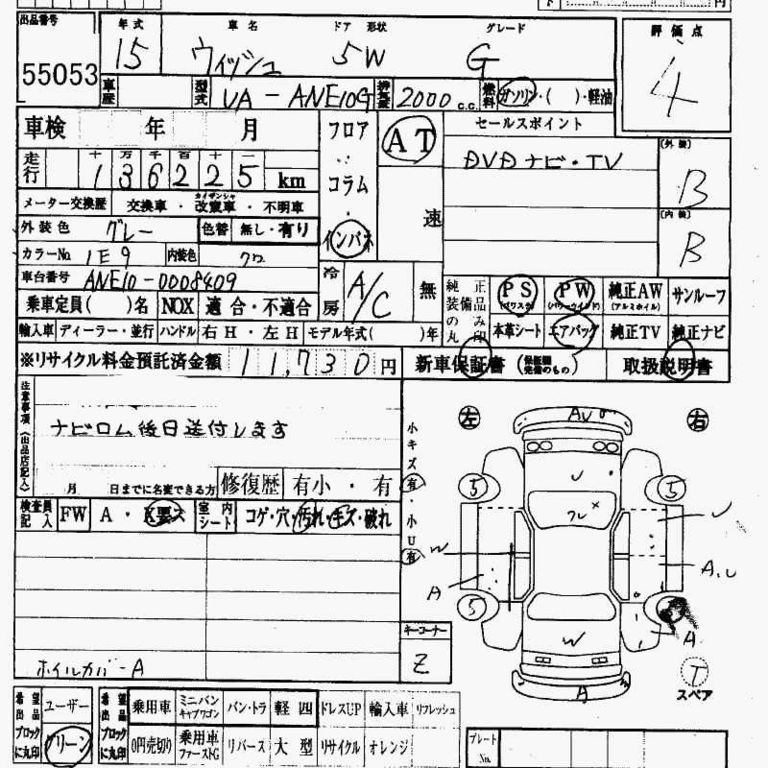 出品番号 年式 車名 ドア 形状 グレード 評価点
55053 15 ウィッシュ 5W G 4
車歴 型式 UA-ANE10G 排気量 2000 c.c. 燃料 ガソリン・( )・軽油
車検 年 月 フロア AT セールスポイント
(外装)
走行 十 万 千 百 十 一
136225 km コラム DVDナビ・TV B
メーター交換歴 交換車・改ざん車・不明車 速
(内装)
外装色 グレー 色替 無し・有り インパネ B
カラーNo. 1E9 内装色 クロ
車台番号 ANE10-0008409 冷房 A/C 無 純正装備品のみ丸印 PS (パワステ) PW (パワーウインド) 純正AW (アルミホイル) サンルーフ
乗車定員( )名 NOX 適合・不適合
輸入車 ディーラー・並行 ハンドル 右H・左H モデル年式( )年 本革シート エアバッグ 純正TV 純正ナビ
※リサイクル料金預託済金額 11,730円 新車保証書 取扱説明書
注意事項(出品店記入)
ナビロム後日送付します
月 日までに名変できる方 修復歴 有小・有
小キズ有・小U有
検査員記入 FW A・X要ス 室内シート コゲ・穴・汚れ・キズ・破れ
左 右
AU
U
5 5
W
U
A
A,U
5
W
A
A
キーコーナー
ホイルカバーA Z T
スペア
希望出品 ユーザー 希望出品 乗用車 ミニバン キャブワゴン バン・トラ 軽四 ドレスUP 輸入車 リフレッシュ
ブロックに丸印 グリーン ブロックに丸印 0円売切り 乗用車 ファーストG リバース 大型 リサイクル オレンジ プレートNo.